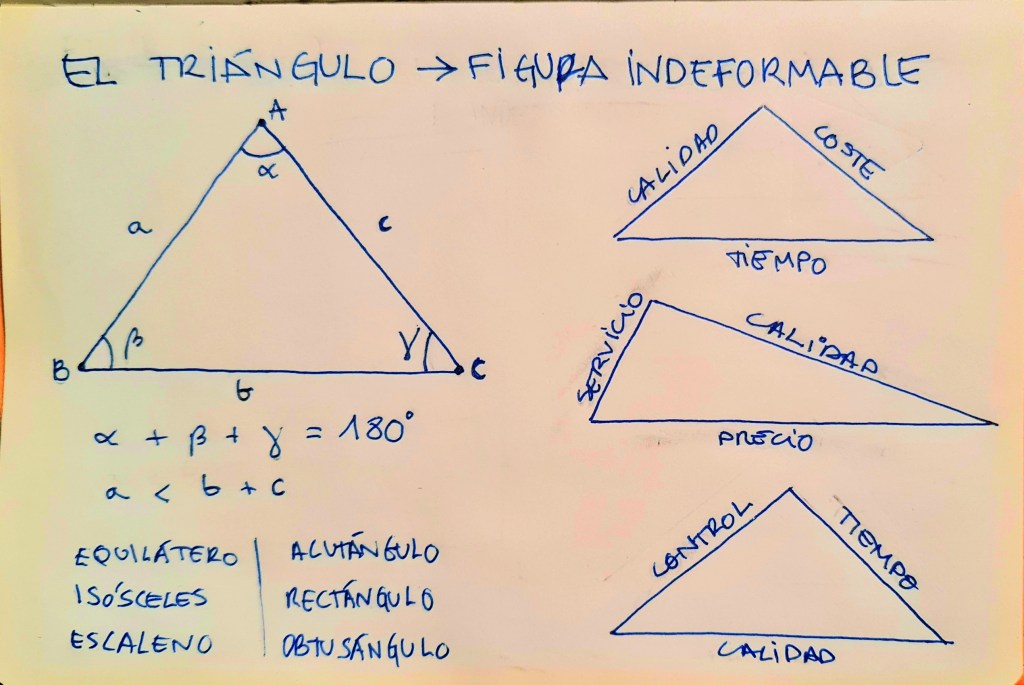 EL TRIÁNGULO → FIGURA INDEFORMABLE
A
α
a
c
B
β
γ
C
b
α + β + γ = 180°
a < b + c
EQUILÁTERO | ACUTÁNGULO
ISÓSCELES | RECTÁNGULO
ESCALENO | OBTUSÁNGULO
CALIDAD
COSTE
TIEMPO
SERVICIO
CALIDAD
PRECIO
CONTROL
TIEMPO
CALIDAD